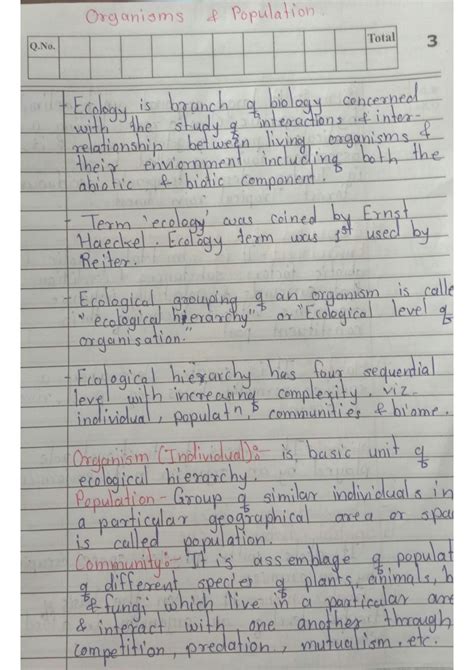 Organisms & Population.
Q.No.
Total
3
- Ecology is branch of biology concerned
with the study of interactions & inter-
relationship between living organisms &
their enviornment including both the
abiotic & biotic component.
- Term 'ecology' was coined by Ernst
Haeckel. Ecology term was 1st used by
Reiter.
- Ecological grouping of an organism is calle
"ecological hierarchy" or "Ecological level of
organisation."
- Ecological hierarchy has four sequential
level with increasing complexity, viz.
individual, populatn, communities & biome.
Organism (Individual):- is basic unit of
ecological hierarchy.
Population - Group of similar individuals in
a particular geographical area or spac
is called population.
Community:- It is assemblage of populat
of different species of plants, animals, b
& fungi which live in a particular are
& interact with one another through
competition, predation, mutualism. etc.